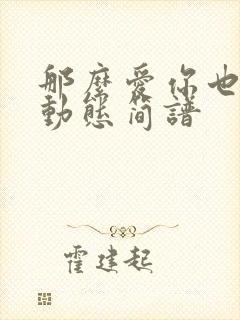 那麽愛你也
動態简譜
霍建起